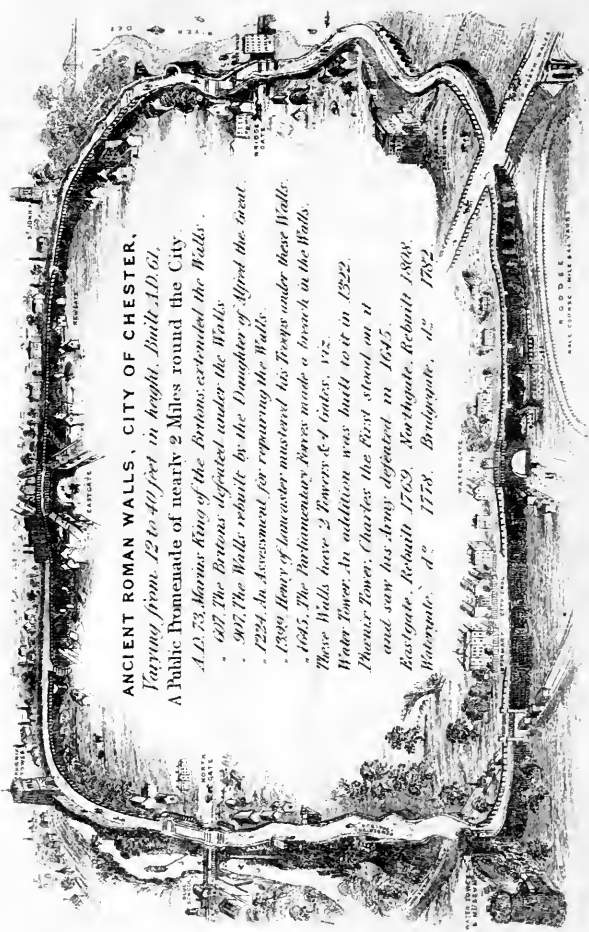 ANCIENT ROMAN WALLS, CITY OF CHESTER,
Varying from 12 to 40 feet in height, Built A.D. 61,
A Public Promenade of nearly 2 Miles round the City.
A.D. 73, Marius King of the Britons, extended the Walls.
" 607, The Britons defeated under the Walls
" 907, The Walls rebuilt by the Daughter of Alfred the Great.
" 1224, An Assessment for repairing the Walls.
" 1399, Henry of Lancaster mustered his Troops under these Walls.
" 1645, The Parliamentary Forces made a breach in the Walls.
These Walls have 2 Towers & 4 Gates, viz.
Water Tower, An addition was built to it in 1322.
Phœnix Tower, Charles the First stood on it
and saw his Army defeated in 1645.
Eastgate, Rebuilt 1769. Northgate, Rebuilt 1808.
Watergate, do 1778. Bridgegate, do 1782
PHŒNIX
TOWER
EASTGATE
NEWGATE
ST JOHNS
RIVER DEE
BRIDGE
GATE
NORTH
GATE
WATERGATE
INFIRMARY
WATER TOWER
& MUSEUM
ROODEE
RACE COURSE 1 MILE